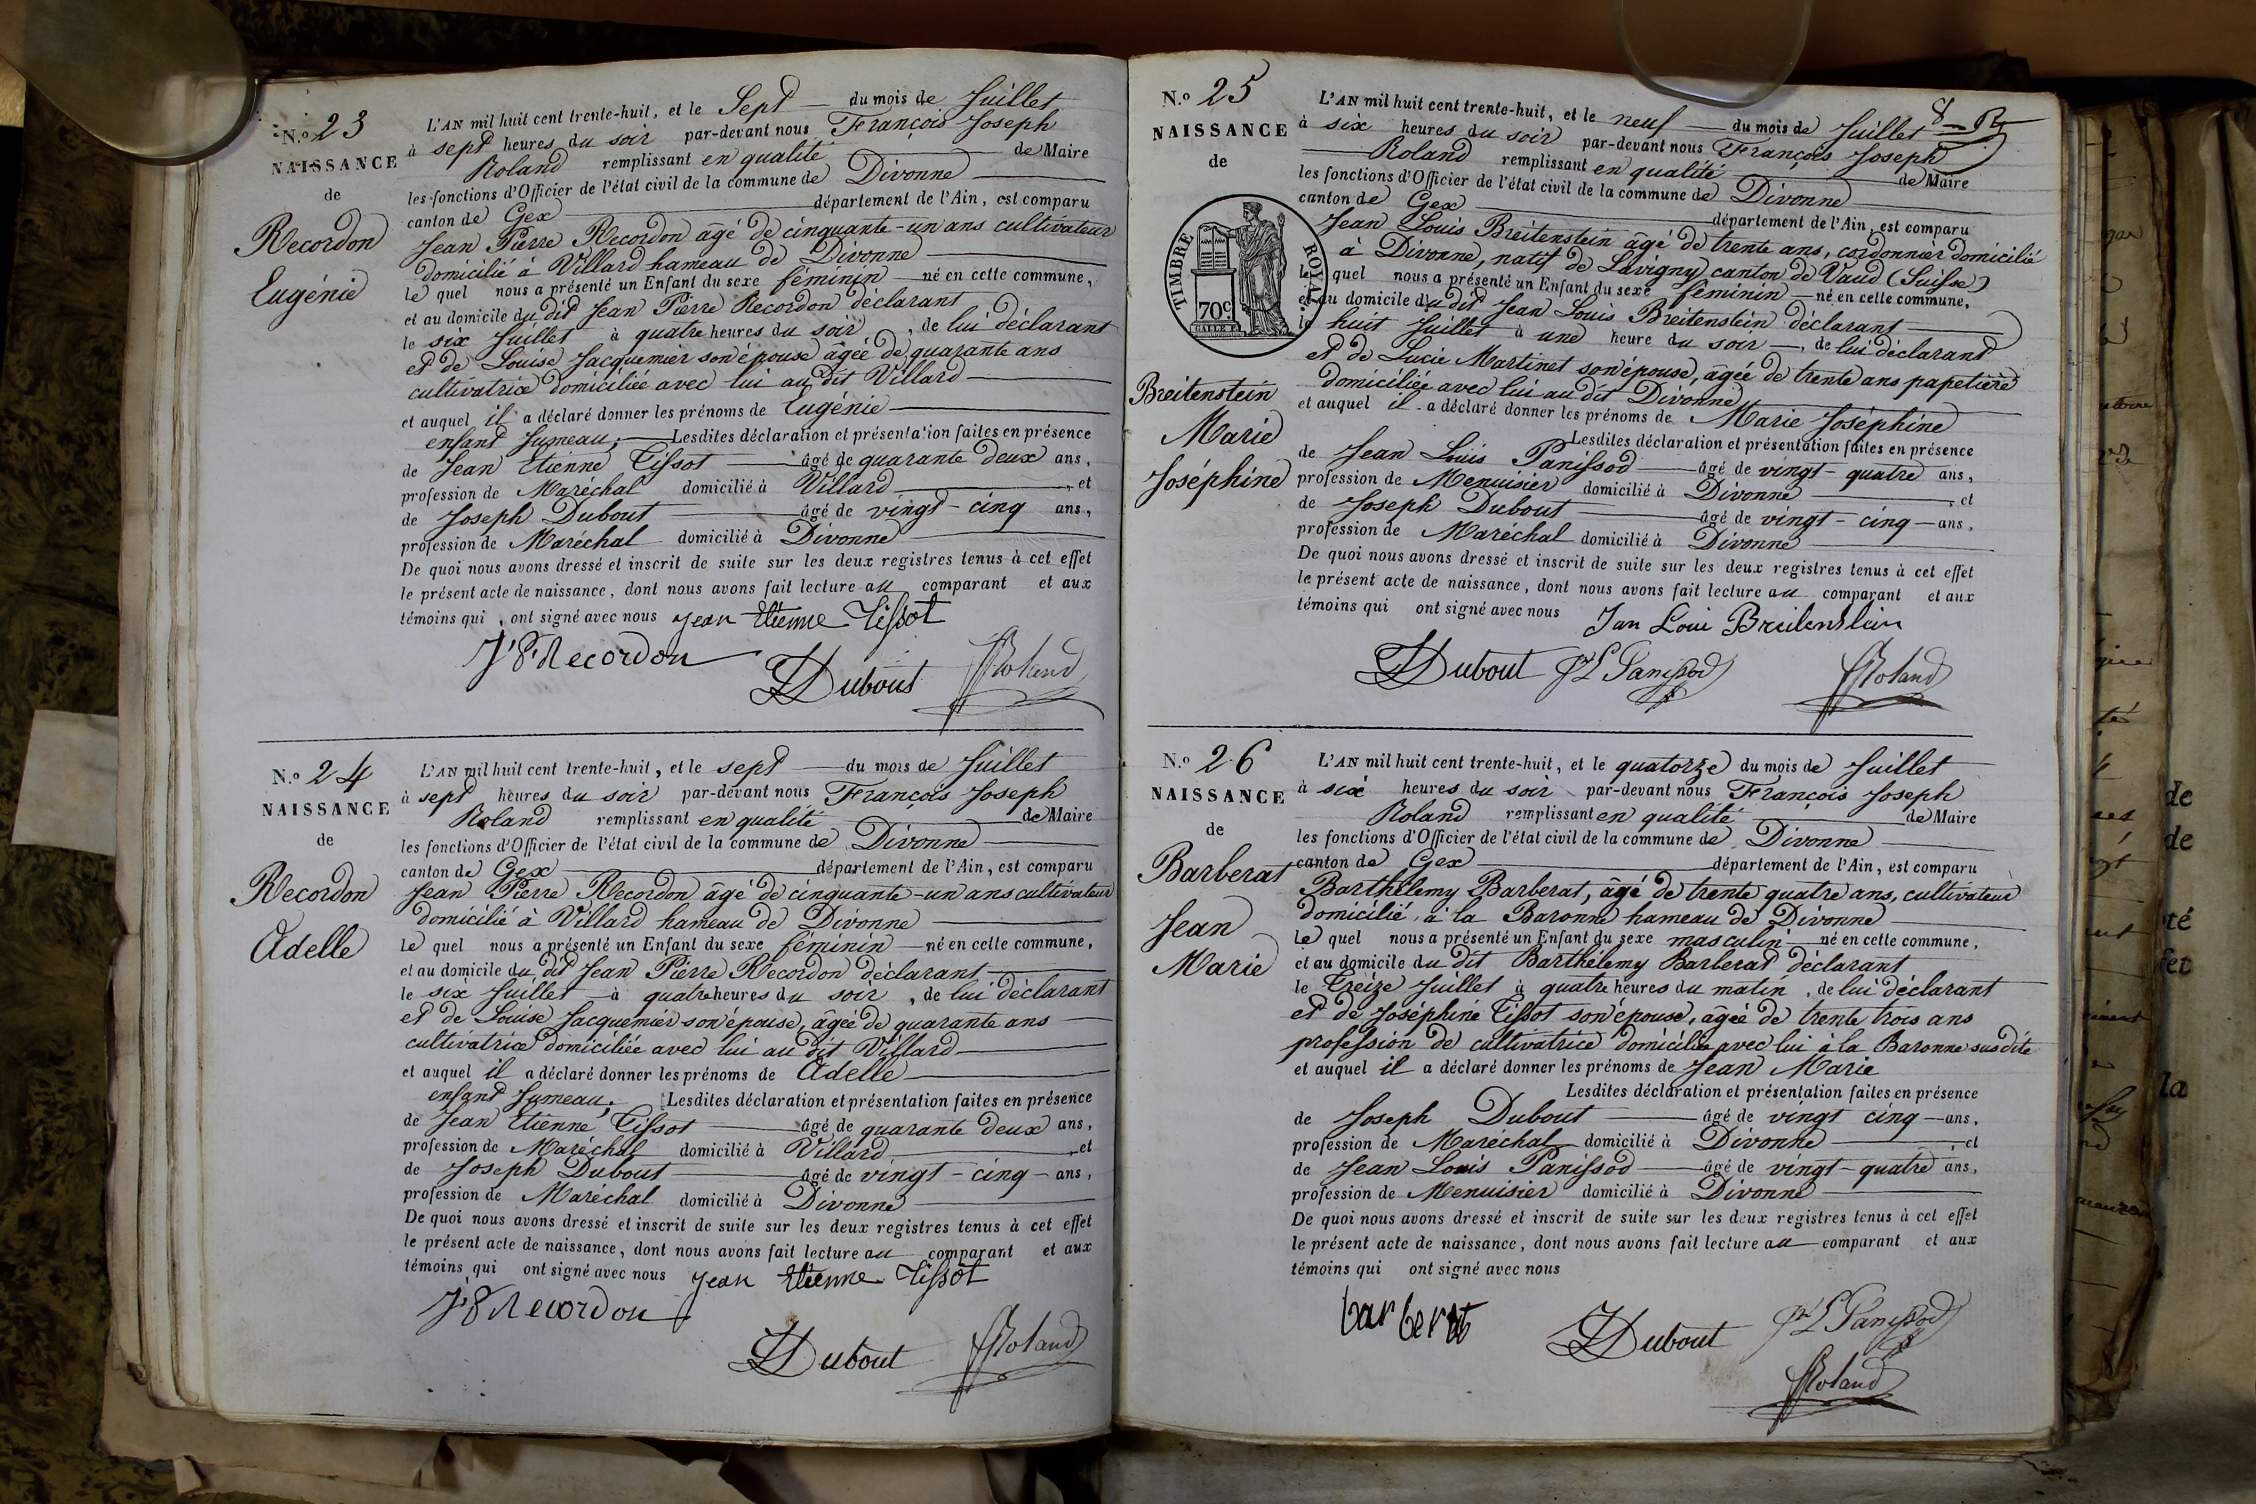 N.º 23
NAISSANCE
de
Recordon
Eugénie
L'AN mil huit cent trente-huit, et le Sept du mois de Juillet
à sept heures du soir par-devant nous François Joseph
Roland remplissant en qualité de Maire
les fonctions d'Officier de l'état civil de la commune de Divonne
canton de Gex département de l'Ain, est comparu
Jean Pierre Recordon âgé de cinquante-un ans cultivateur
domicilié à Villard hameau de Divonne
le quel nous a présenté un Enfant du sexe féminin né en cette commune,
et au domicile du dit Jean Pierre Recordon déclarant
le six Juillet à quatre heures du soir, de lui déclarant
et de Louise Jacquemier son épouse âgée de quarante ans
cultivatrice domiciliée avec lui au dit Villard
et auquel il a déclaré donner les prénoms de Eugénie
enfant Jumeau; Lesdites déclaration et présentation faites en présence
de Jean Etienne Tissot âgé de quarante deux ans,
profession de Maréchal domicilié à Villard, et
de Joseph Dubout âgé de vingt-cinq ans,
profession de Maréchal domicilié à Divonne
De quoi nous avons dressé et inscrit de suite sur les deux registres tenus à cet effet
le présent acte de naissance, dont nous avons fait lecture au comparant et aux
témoins qui, ont signé avec nous Jean Etienne Tissot
J P Recordon
Dubout Roland
N.º 24
NAISSANCE
de
Recordon
Adelle
L'AN mil huit cent trente-huit, et le sept du mois de Juillet
à sept heures du soir par-devant nous François Joseph
Roland remplissant en qualité de Maire
les fonctions d'Officier de l'état civil de la commune de Divonne
canton de Gex département de l'Ain, est comparu
Jean Pierre Recordon âgé de cinquante-un ans cultivateur
domicilié à Villard hameau de Divonne
le quel nous a présenté un Enfant du sexe féminin né en cette commune,
et au domicile du dit Jean Pierre Recordon déclarant
le six Juillet à quatre heures du soir, de lui déclarant
et de Louise Jacquemier son épouse, âgée de quarante ans
cultivatrice domiciliée avec lui au dit Villard
et auquel il a déclaré donner les prénoms de Adelle
enfant Jumeau; Lesdites déclaration et présentation faites en présence
de Jean Etienne Tissot âgé de quarante deux ans,
profession de Maréchal domicilié à Villard, et
de Joseph Dubout âgé de vingt-cinq ans,
profession de Maréchal domicilié à Divonne
De quoi nous avons dressé et inscrit de suite sur les deux registres tenus à cet effet
le présent acte de naissance, dont nous avons fait lecture au comparant et aux
témoins qui ont signé avec nous Jean Etienne Tissot
J P Recordon
Dubout Roland
N.º 25
NAISSANCE
de
TIMBRE ROYAL
70c.
Breitenstein
Marie
Joséphine
L'AN mil huit cent trente-huit, et le neuf du mois de Juillet
à six heures du soir par-devant nous François Joseph
Roland remplissant en qualité de Maire
les fonctions d'Officier de l'état civil de la commune de Divonne
canton de Gex département de l'Ain, est comparu
Jean Louis Breitenstein âgé de trente ans, cordonnier domicilié
à Divonne, natif de Lavigny canton de Vaud (Suisse)
le quel nous a présenté un Enfant du sexe féminin né en cette commune,
et au domicile du dit Jean Louis Breitenstein déclarant
le huit Juillet à une heure du soir, de lui déclarant
et de Lucie Martinet son épouse, âgée de trente ans papetière
domiciliée avec lui au dit Divonne
et auquel il a déclaré donner les prénoms de Marie Joséphine
Lesdites déclaration et présentation faites en présence
de Jean Louis Panissod âgé de vingt-quatre ans,
profession de Menuisier domicilié à Divonne, et
de Joseph Dubout âgé de vingt-cinq ans,
profession de Maréchal domicilié à Divonne
De quoi nous avons dressé et inscrit de suite sur les deux registres tenus à cet effet
le présent acte de naissance, dont nous avons fait lecture au comparant et aux
témoins qui ont signé avec nous Jan Loui Breitenstein
Dubout J L Panissod Roland
N.º 26
NAISSANCE
de
Barberat
Jean
Marie
L'AN mil huit cent trente-huit, et le quatorze du mois de Juillet
à six heures du soir par-devant nous François Joseph
Roland remplissant en qualité de Maire
les fonctions d'Officier de l'état civil de la commune de Divonne
canton de Gex département de l'Ain, est comparu
Barthélemy Barberat, âgé de trente quatre ans, cultivateur
domicilié à la Baronne hameau de Divonne
le quel nous a présenté un Enfant du sexe masculin né en cette commune,
et au domicile du dit Barthélemy Barberat déclarant
le Treize Juillet à quatre heures du matin, de lui déclarant
et de Joséphine Tissot son épouse, agée de trente trois ans
profession de cultivatrice domiciliée avec lui à la Baronne susdite
et auquel il a déclaré donner les prénoms de Jean Marie
Lesdites déclaration et présentation faites en présence
de Joseph Dubout âgé de vingt cinq ans,
profession de Maréchal domicilié à Divonne, et
de Jean Louis Panissod âgé de vingt-quatre ans,
profession de Menuisier domicilié à Divonne
De quoi nous avons dressé et inscrit de suite sur les deux registres tenus à cet effet
le présent acte de naissance, dont nous avons fait lecture au comparant et aux
témoins qui ont signé avec nous
barberat Dubout J L Panissod
Roland
de
de
té
la